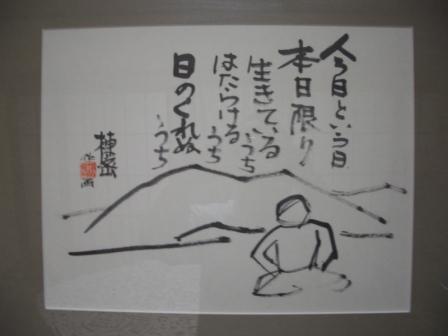 今日という日
本日限り
生きているうち
はたらけるうち
日のくれぬうち